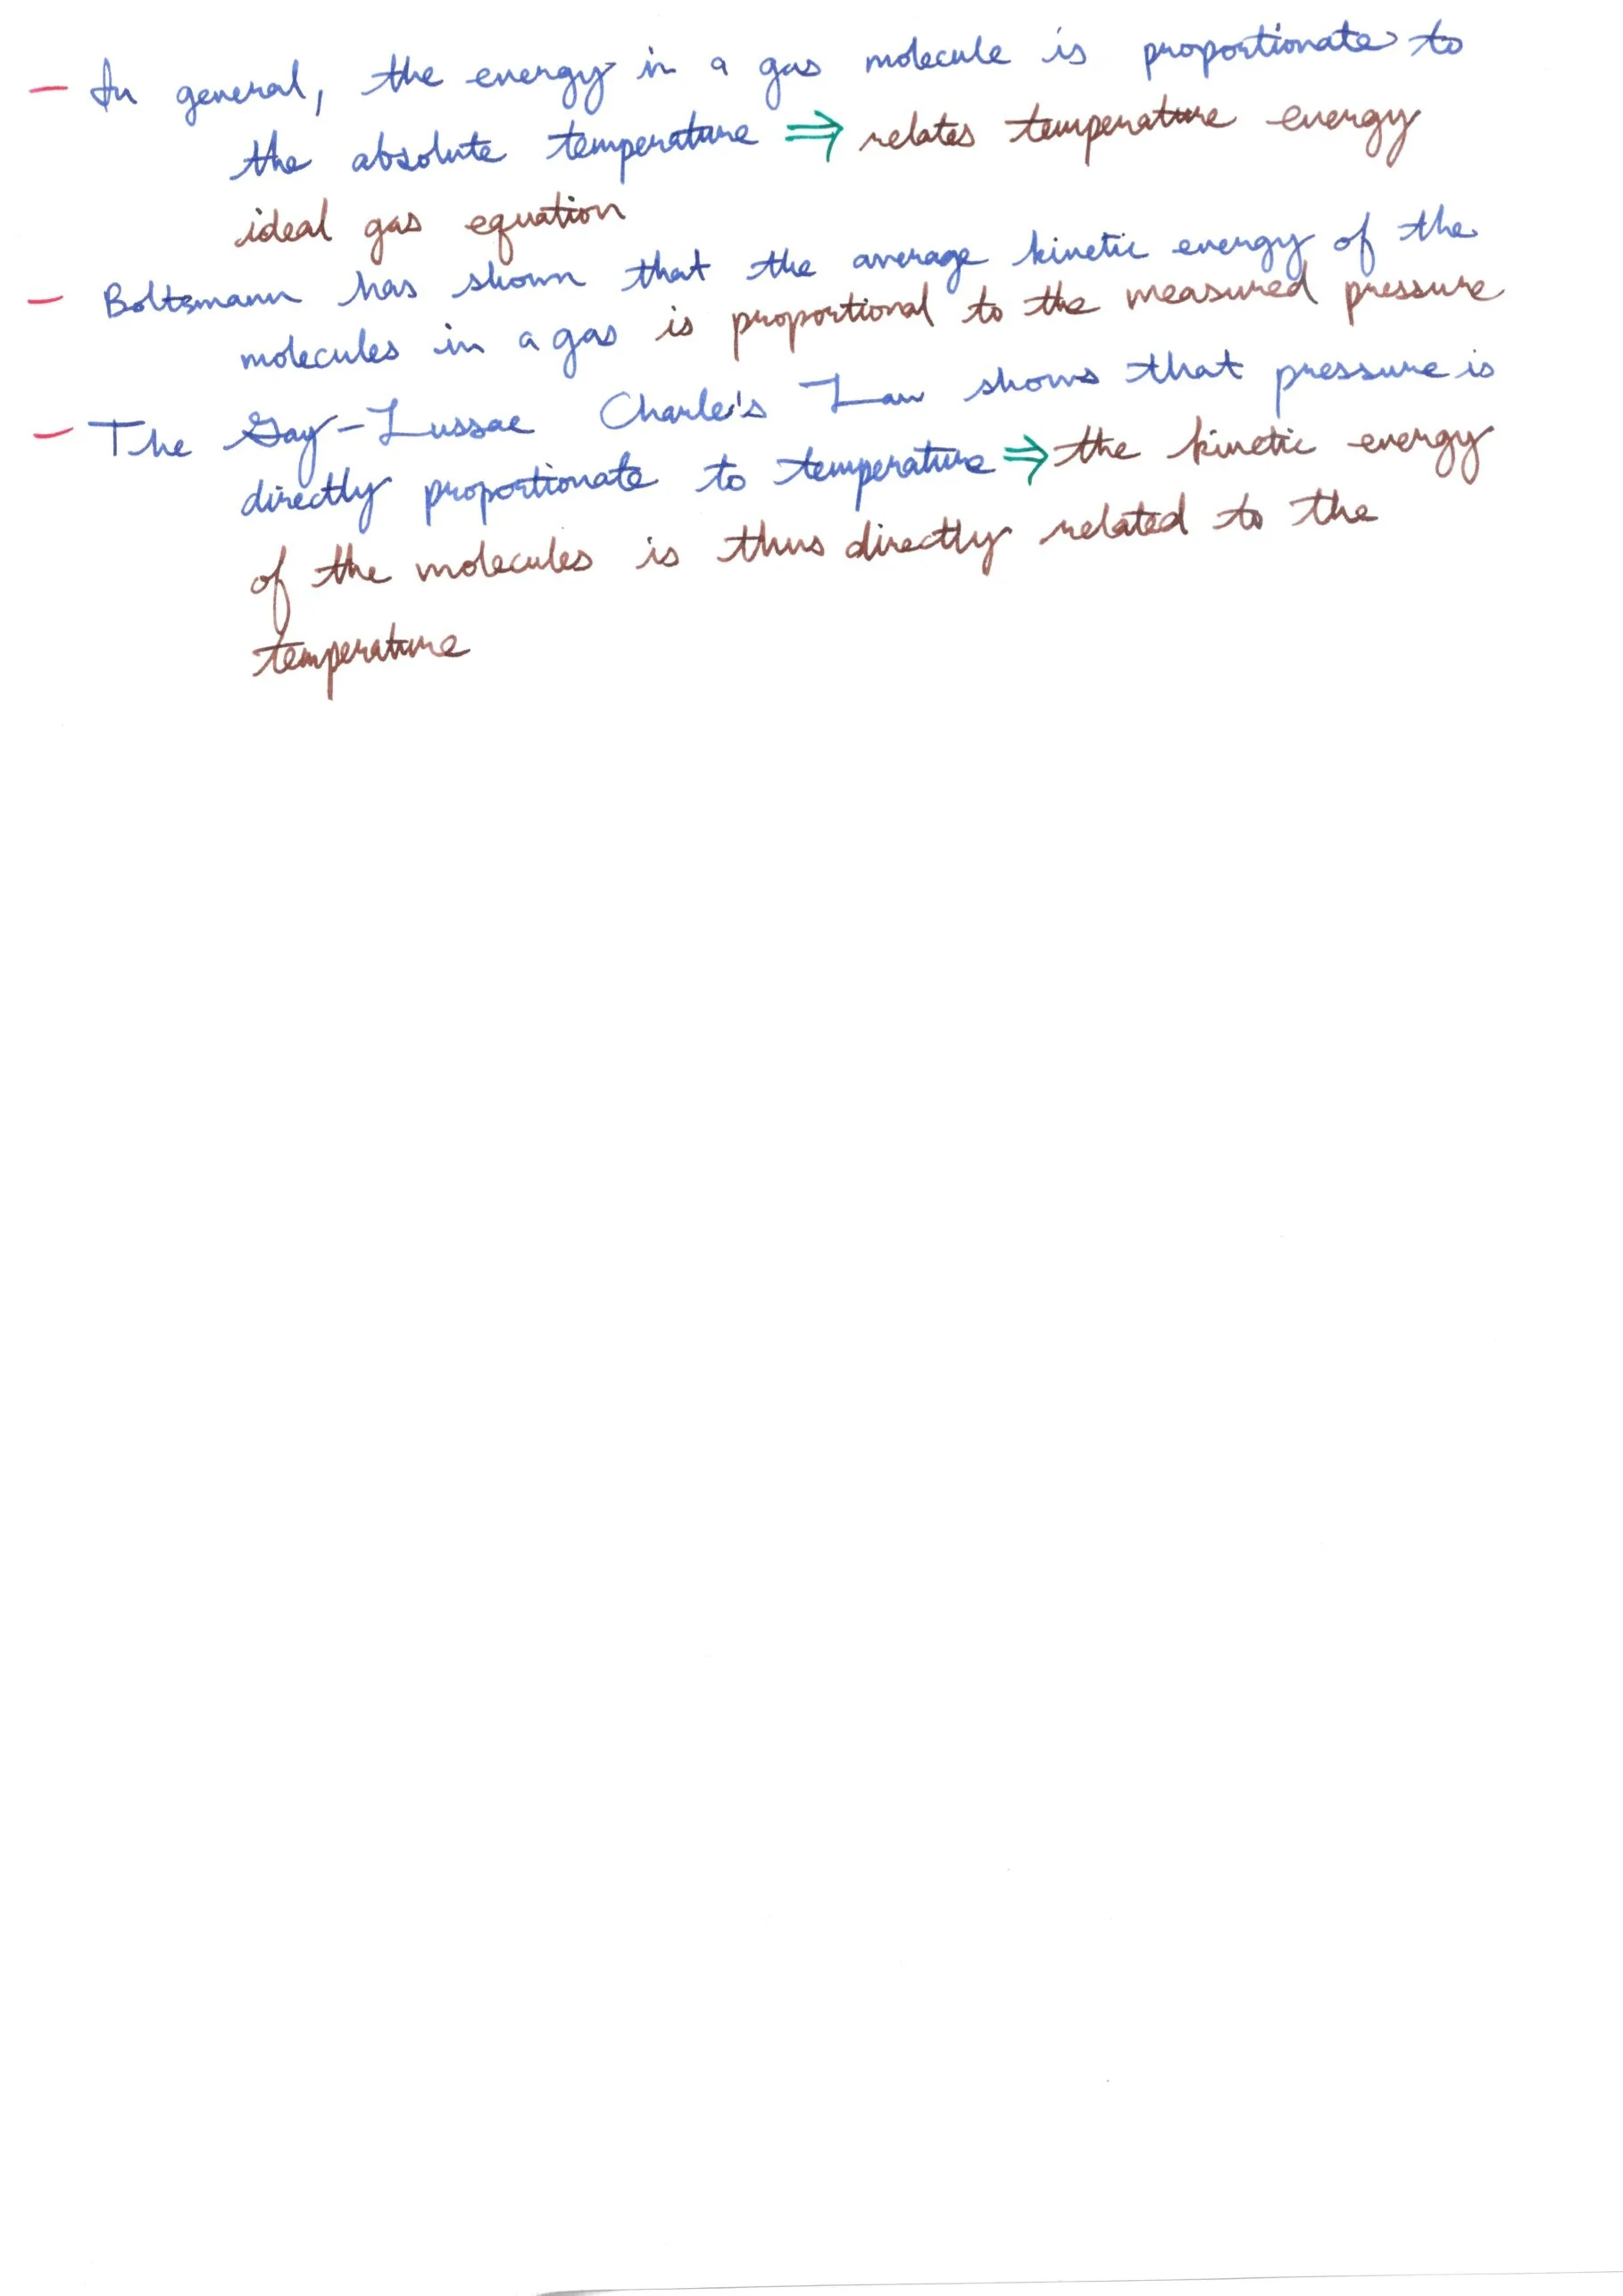 - In general, the energy in a gas molecule is proportionate to
the absolute temperature ⇒ relates temperature energy
ideal gas equation
- Boltzmann has shown that the average kinetic energy of the
molecules in a gas is proportional to the measured pressure
- The Gay-Lussac Charle's Law shows that pressure is
directly proportionate to temperature ⇒ the kinetic energy
of the molecules is thus directly related to the
temperature